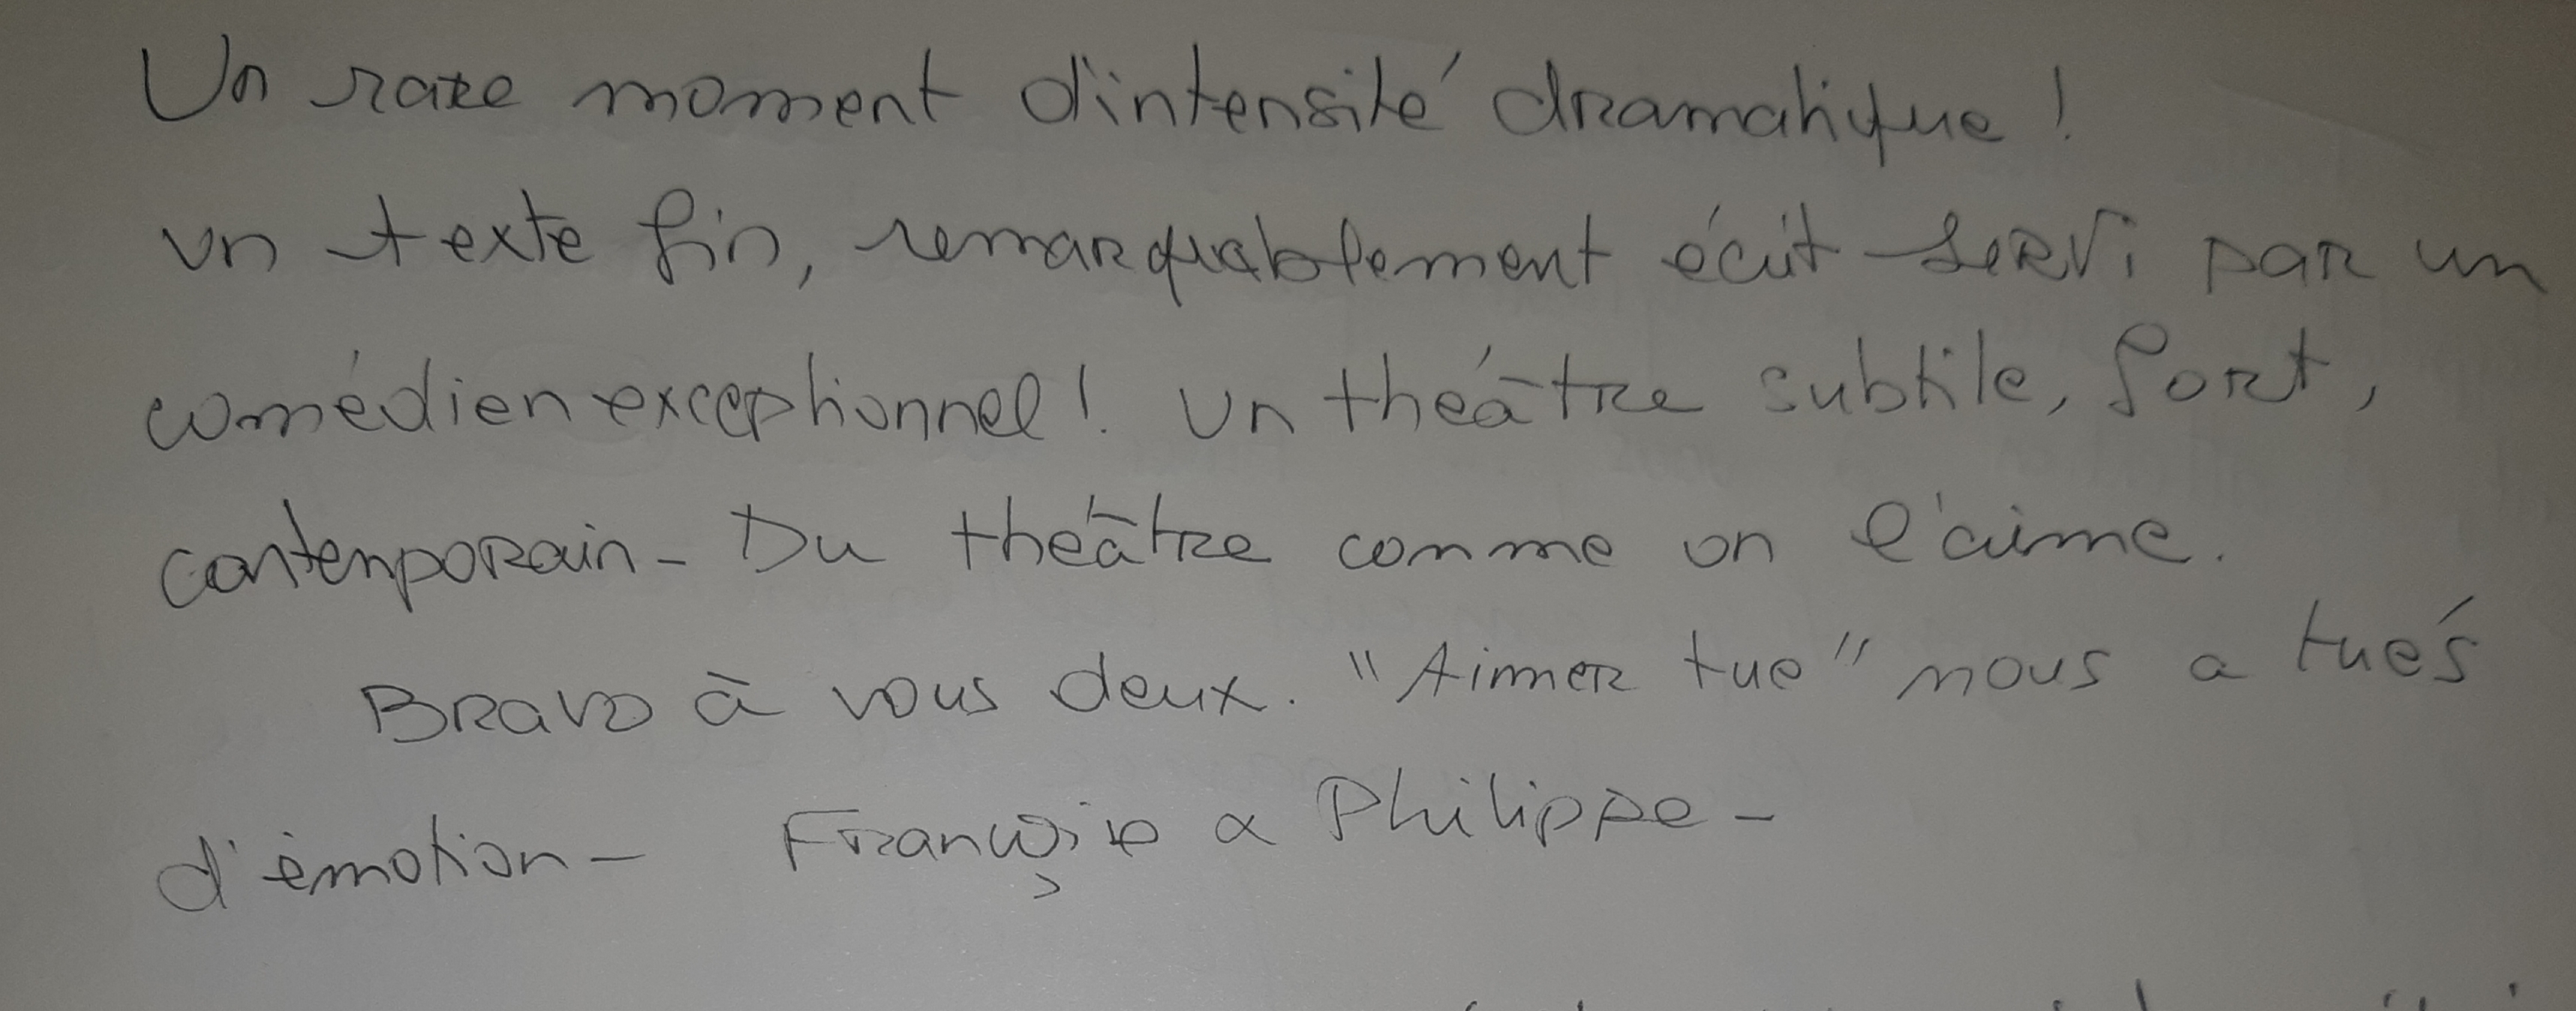 Un rare moment d'intensité dramatique !
un texte fin, remarquablement écrit servi par un
comédien exceptionnel ! Un théâtre subtile, fort,
contemporain - Du théâtre comme on l'aime.
Bravo à vous deux. "Aimer tue" nous a tués
d'émotion - Françoise & Philippe -